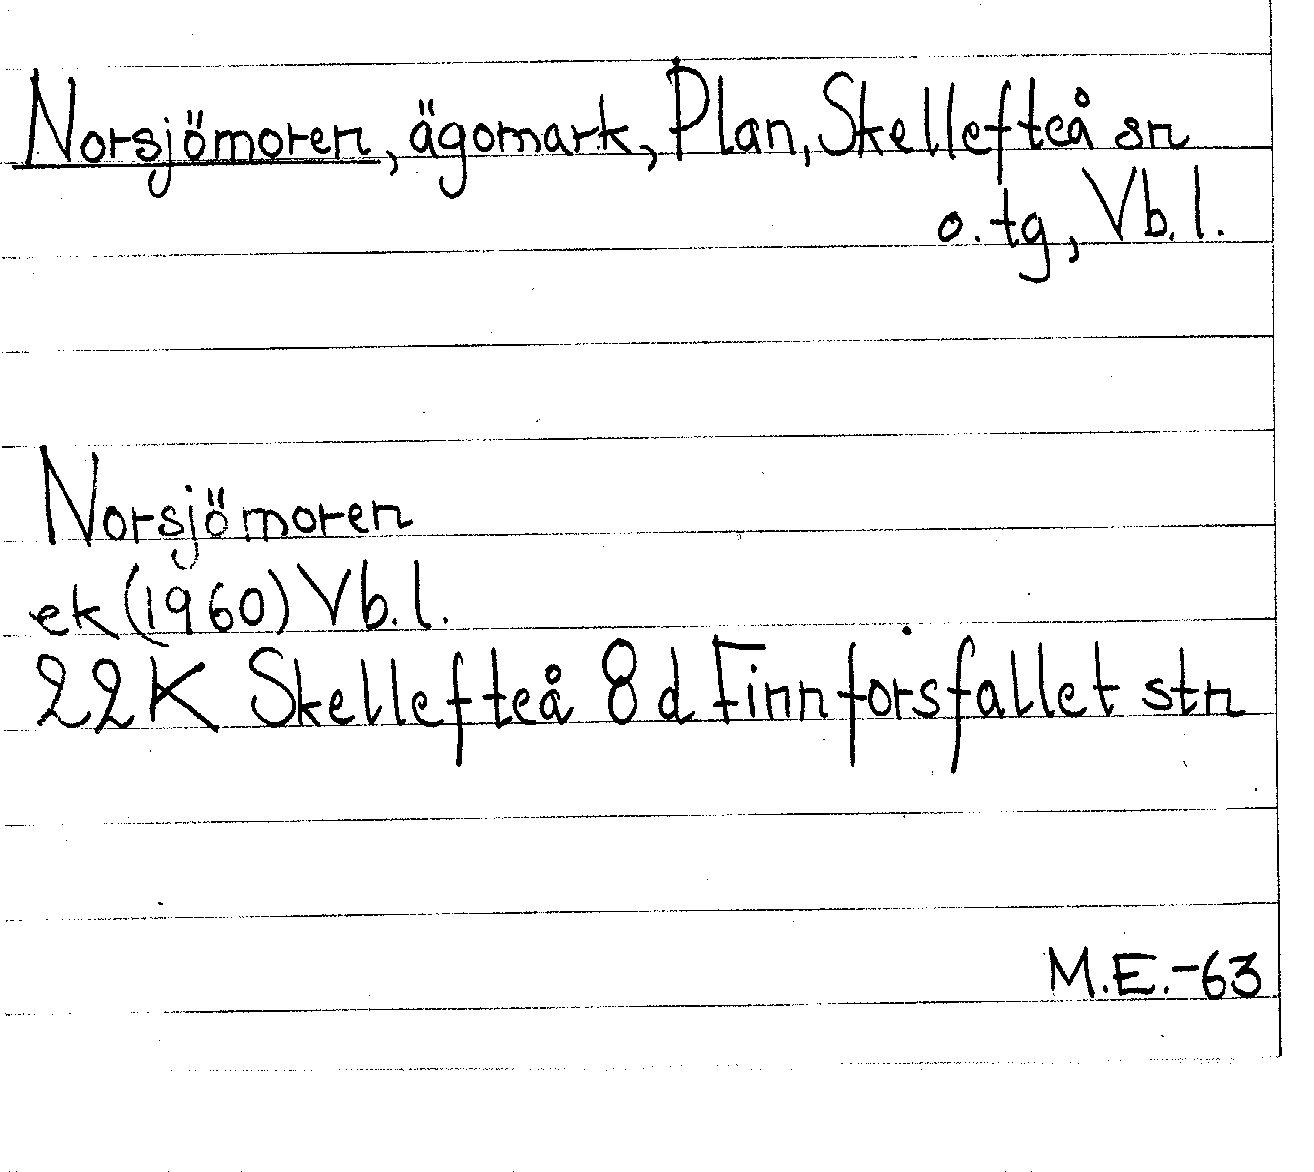 Norsjömoren, ägomark, Plan, Skellefteå sn
o. tg, Vb. l.
Norsjömoren
ek (1960) Vb. l.
22K Skellefteå 8d Finnforsfallet stn
M.E.-63